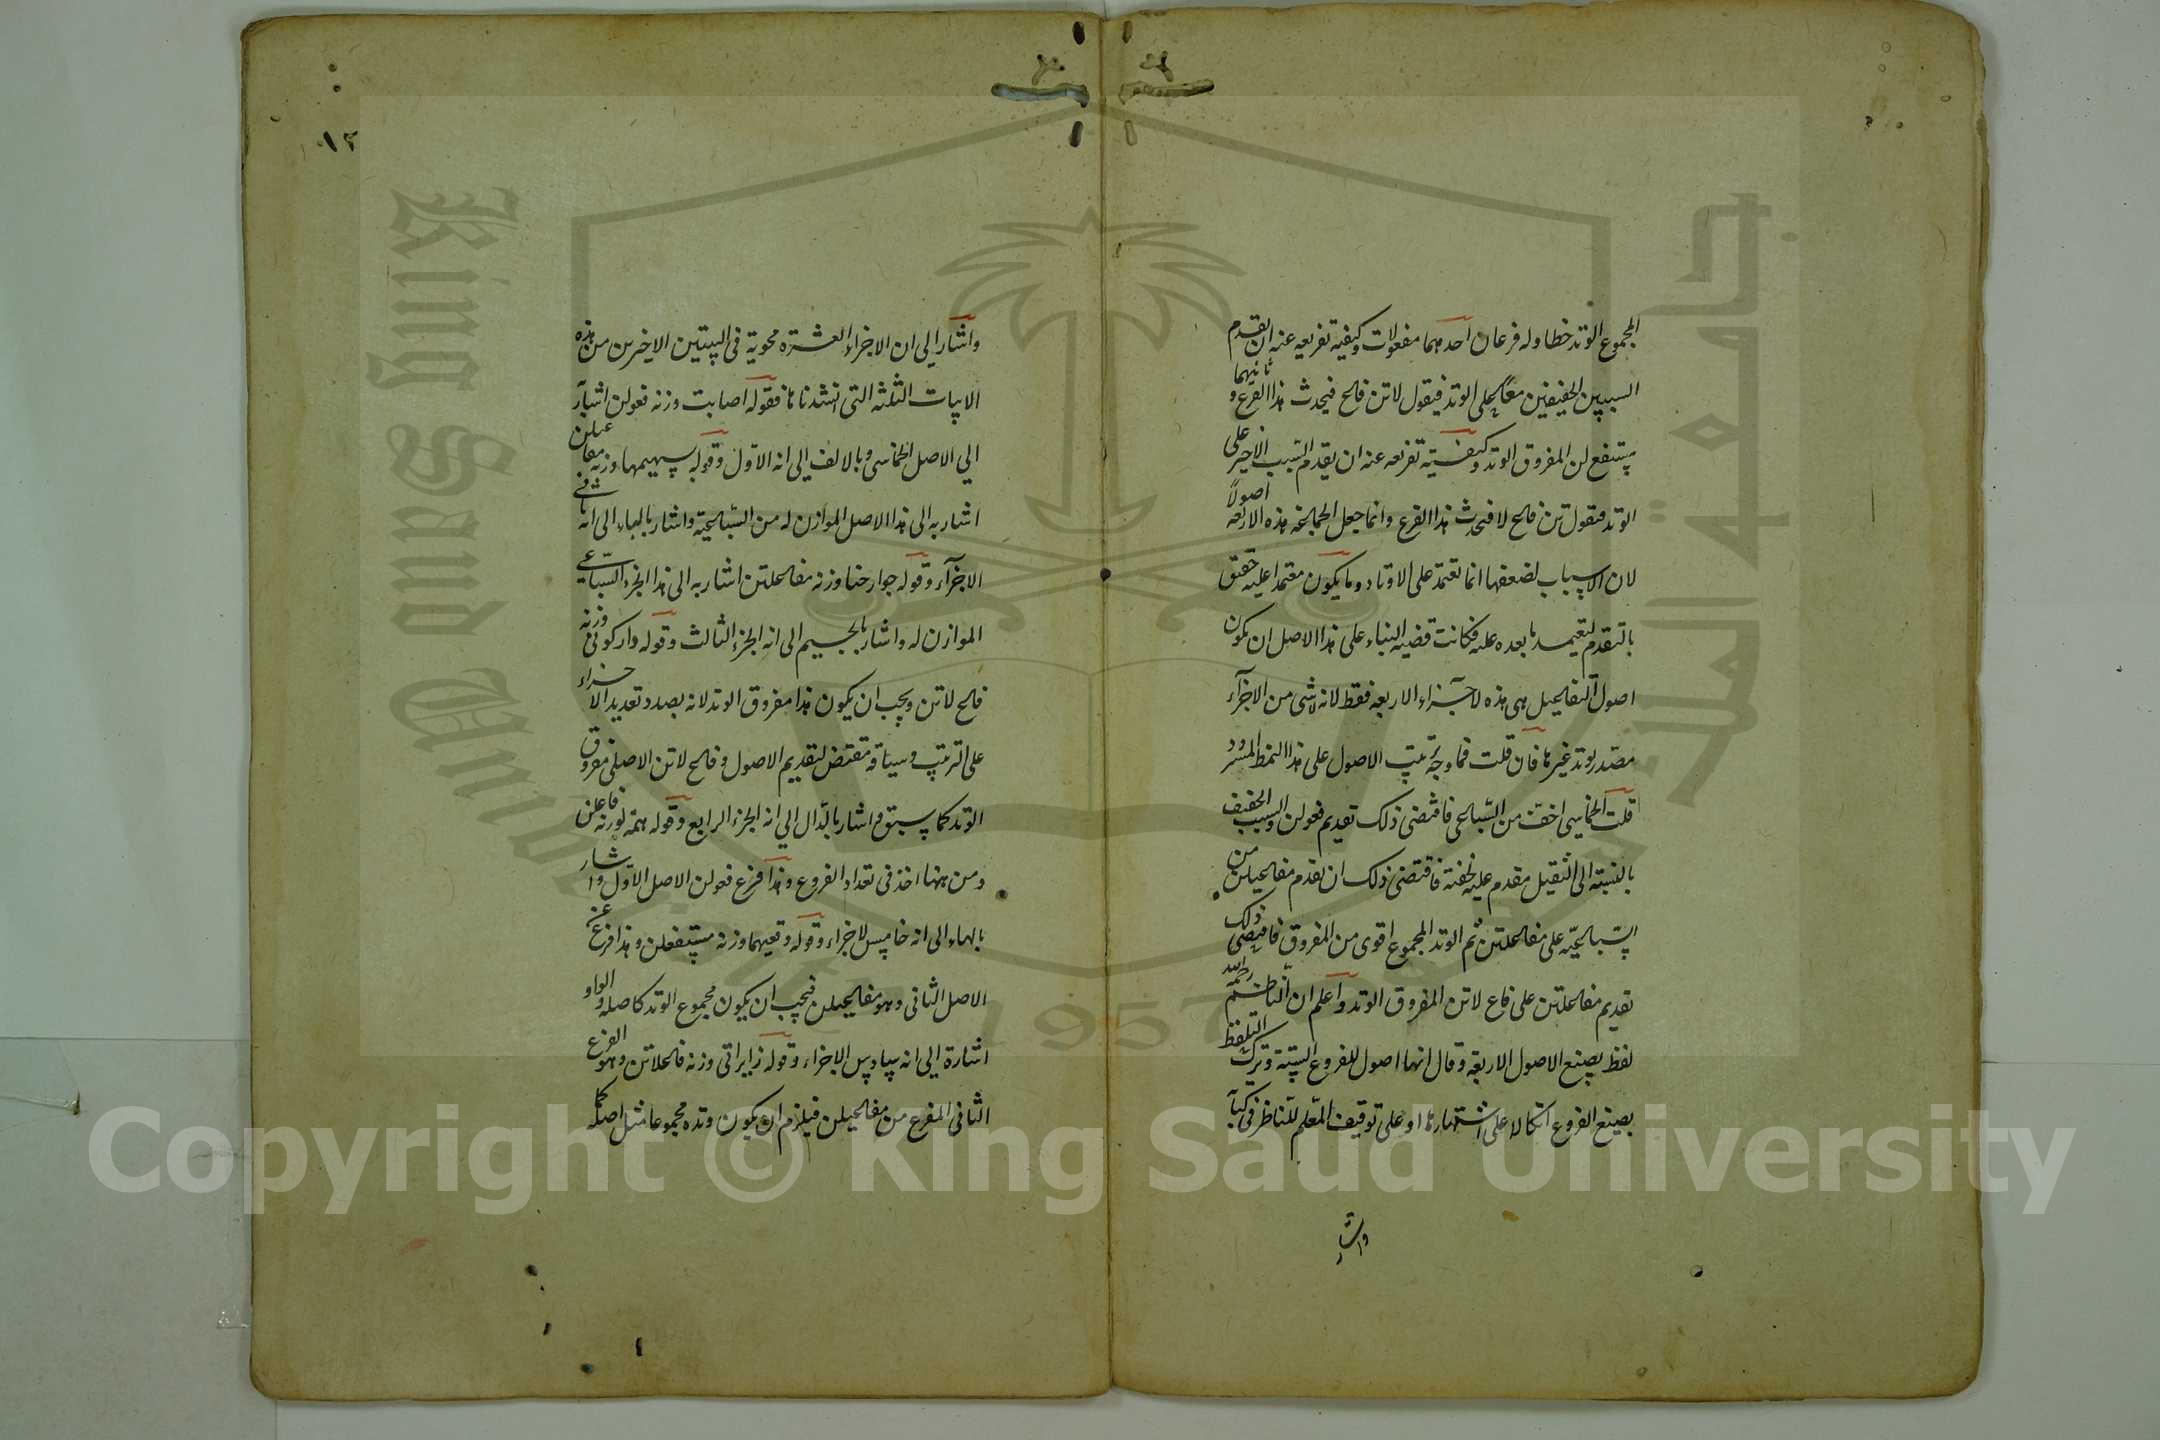 المجموع الوتد خطا وله فرعان احدهما مفعولات وكيفية تفريعه عنه ان تقدم
السببين الخفيفين معا على الوتد فيقول لاتن فاع فيحدث هذا الفرع و ثانيهما
مستفع لن المفروق الوتد وكيفية تفريعه عنه ان يقدم السبب الاخير على
الوتد فتقول تن فاع لا فيحدث هذا الفرع وانما جعل الجماعة هذه الاربعة اصولا
لان الاسباب لضعفها انما تعتمد على الاوتاد وما يكون معتمدا عليه حقيق
بالتقدم ليعتمد ما بعده عليه فكانت قضية البناء على هذا الاصل ان يكون
اصول التفاعيل هي هذه لاجزاء الاربعة فقط لانه لا شي من الاجزاء
مصدر بوتد غيرها فان قلت فما وجه ترتيب الاصول على هذا النمط المسرود
قلت الخماسي اخف من السباعي فاقتضى ذلك تقديم فعولن والسبب الخفيف
بالنسبة الى الثقيل مقدم عليه لخفته فاقتضى ذلك ان يقدم مفاعيلن من
السباعية على مفاعلتن ثم الوتد المجموع اقوى من المفروق فاقتضى ذلك
تقديم مفاعلتن على فاع لاتن المفروق الوتد واعلم ان الناظم رحمه الله
لفظ بصيغ الاصول الاربعة وقال انها اصول للفروع الستة وترك التلفظ
بصيغ الفروع اتكالا على اشتهارها او على توقيف المعلم للناظر في كتابه
واشار
١٢
واشار الي ان الاجزاء العشرة محوية في البيتين الاخيرين من هذه
الابيات الثلثة التي انشدناها فقوله اصابت وزنه فعولن اشار
الي الاصل الخماسي وبالالف الي انه الاول وقوله بسهميها وزنه مفاعيلن
اشار به الى هذا الاصل الموازن له من السباعية واشار بالباء الى انه ثاني
الاجزاء وقوله جوارحنا وزنه مفاعلتن اشار به الى هذا الجزء السباعي
الموازن له واشار بالجيم الى انه الجزء الثالث وقوله داركوني وزنه
فاع لاتن ويجب ان يكون هذا مفروق الوتد لانه بصدد تعديد الاجزاء
على الترتيب وسياقه مقتض لتقديم الاصول وفاع لاتن الاصلي مفروق
الوتد كما سبق واشار بالدال الي انه الجزء الرابع وقوله همة لوزنه فاعلن
ومن ههنا اخذ في تعداد الفروع وهذا فرع فعولن الاصل الاول واشار
بالهاء الى انه خامس لاجزاء وقوله وقعيهما وزنه مستفعلن وهذا فرع عن
الاصل الثاني وهو مفاعيلن فيجب ان يكون مجموع الوتد كاصله والواو
اشارة الي انه سادس الاجزاء وقوله زايراتي وزنه فاعلاتن وهو الفرع
الثاني المفرع من مفاعيلن فيلزم ان يكون وتده مجموعا مثل اصله كما
Copyright © King Saud University
1957